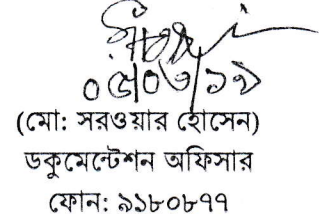 ০৫/০৩/১৯
(মো: সরওয়ার হোসেন)
ডকুমেন্টেশন অফিসার
ফোন: ৯১৮০৮৭৭